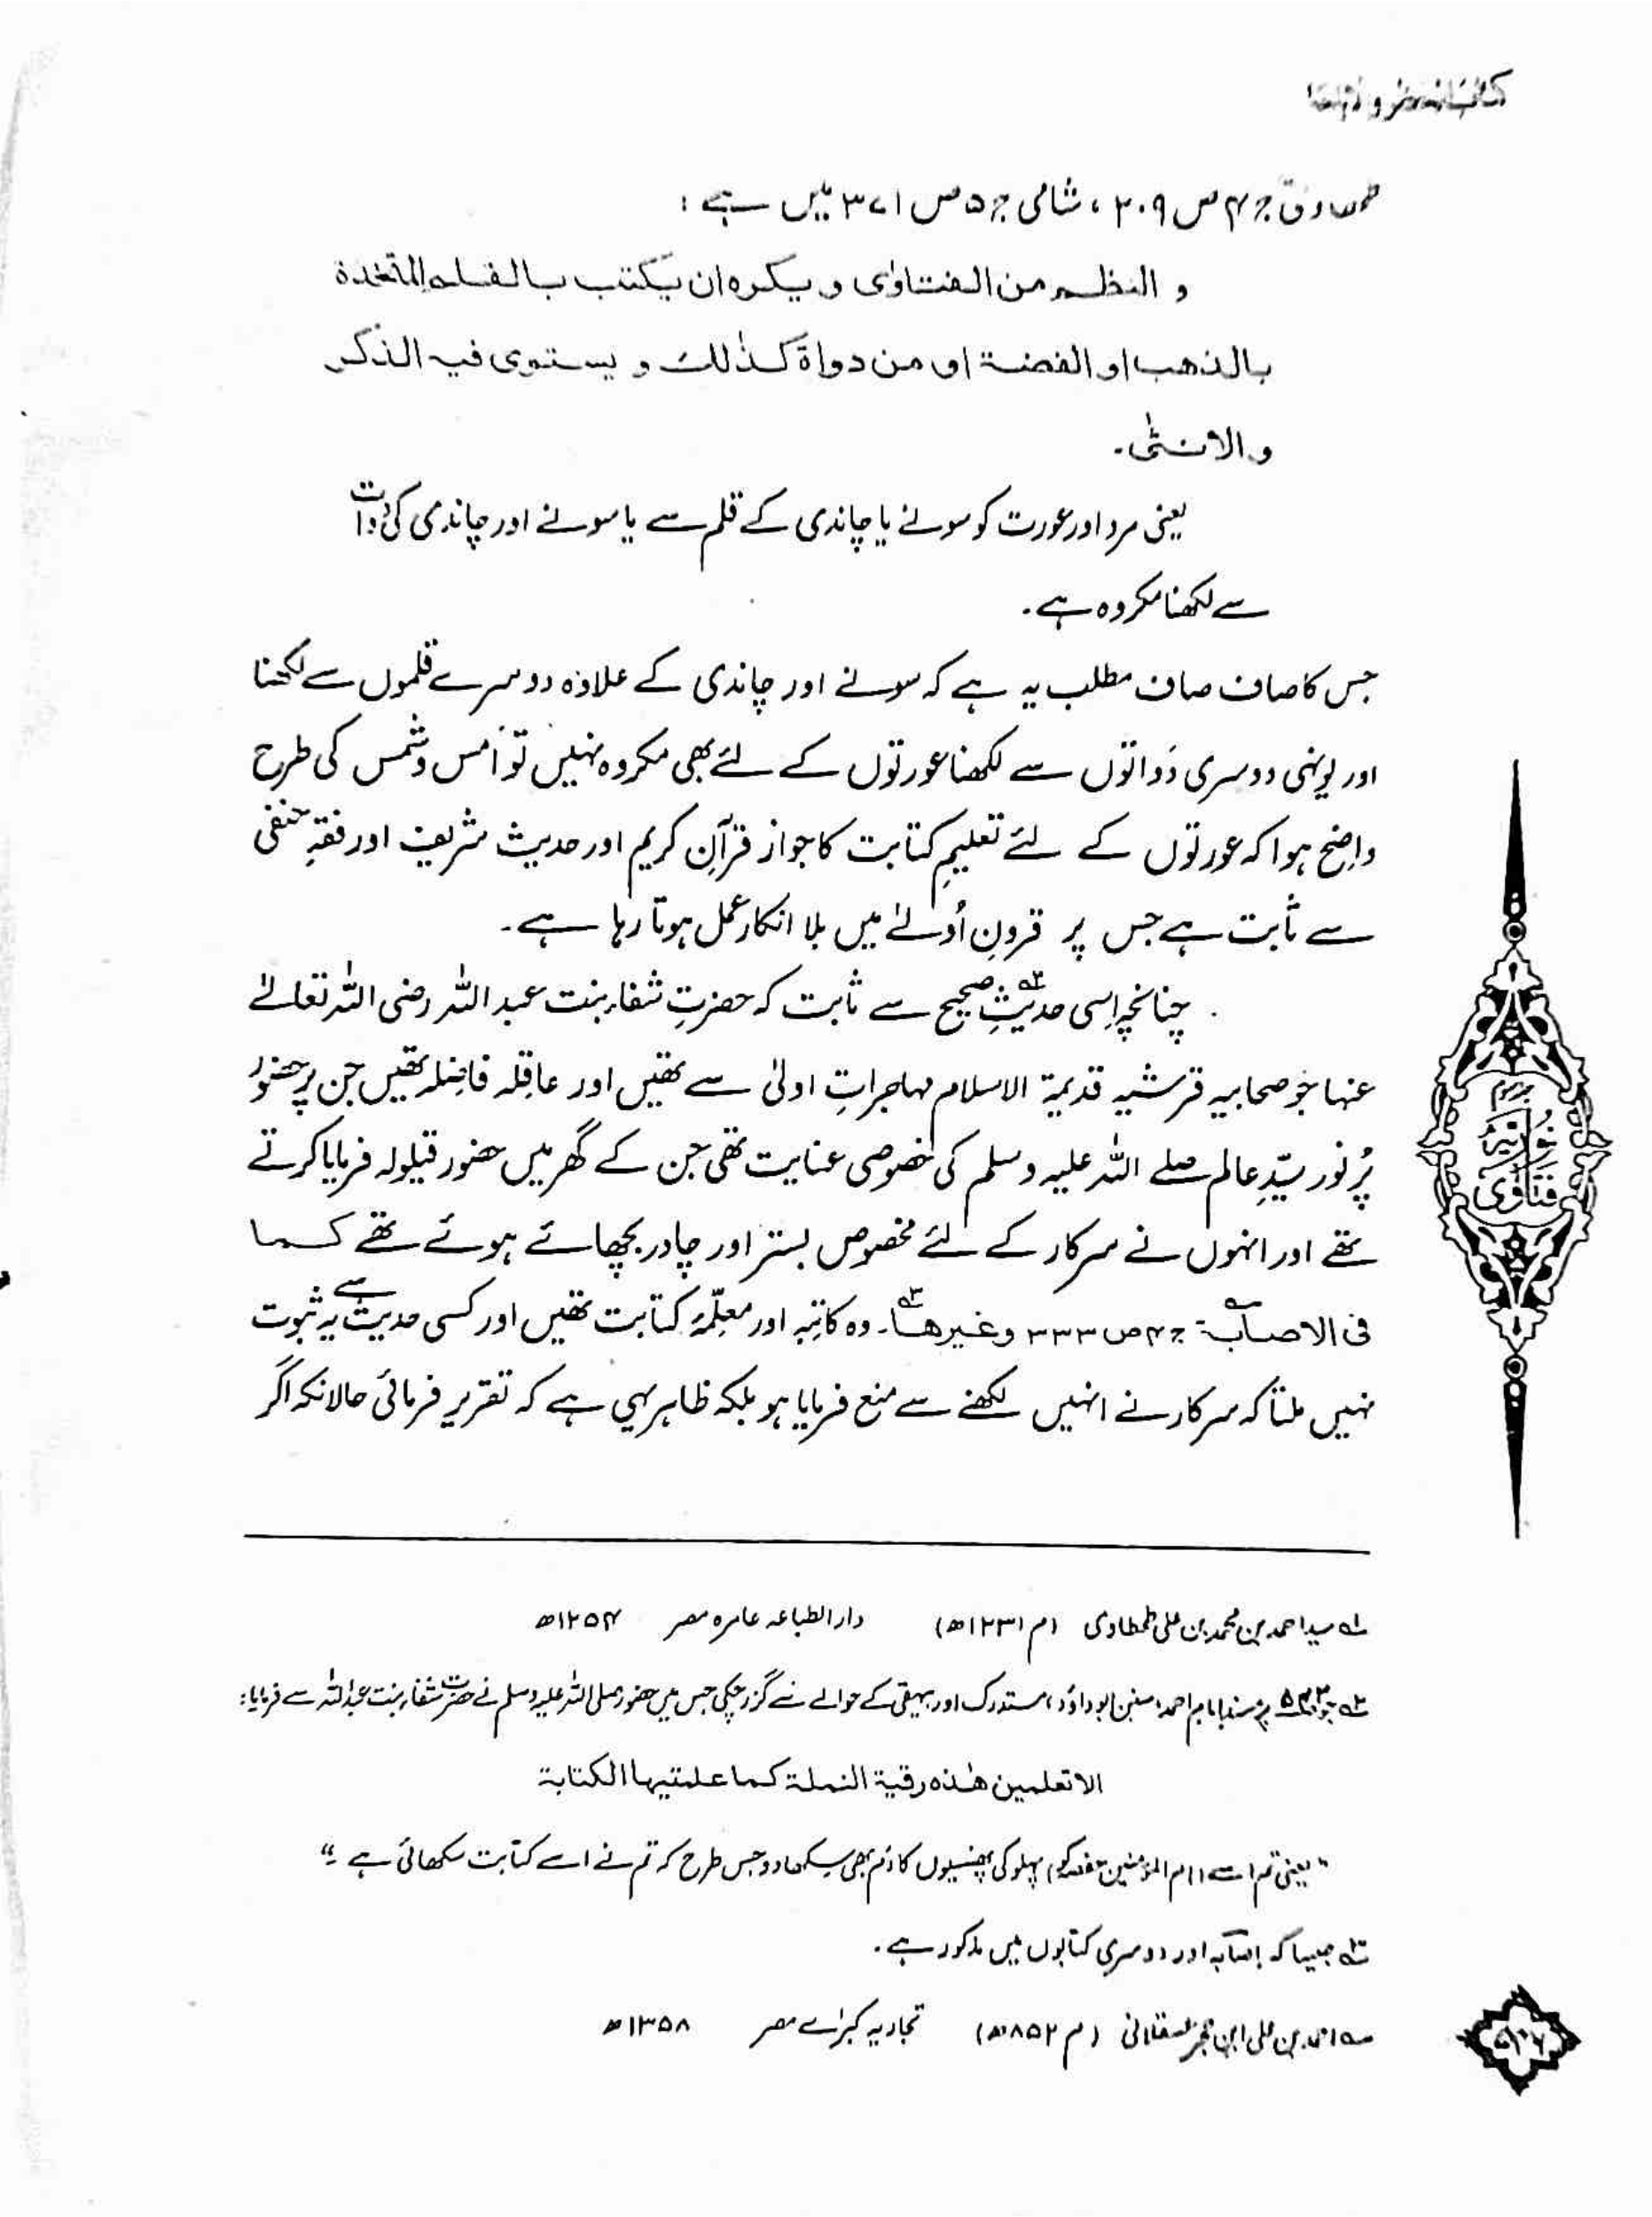 کتاب الحظر والاباحۃ
ج ۴ ص ۲۰۹، شامی ج ۵ ص ۳۷۱ میں ہے :
و النظم من الفتاوٰی و یکرہ ان یکتب بالقلم المتخذة
بالذھب او الفضة او من دواة کذٰلک و یستوی فیہ الذکر
و الانثٰی۔
یعنی مرد اور عورت کو سونے یا چاندی کے قلم سے یا سونے اور چاندی کی دوات
سے لکھنا مکروہ ہے۔
جس کا صاف صاف مطلب یہ ہے کہ سونے اور چاندی کے علاوہ دوسرے قلموں سے لکھنا
اور یونہی دوسری دَواتوں سے لکھنا عورتوں کے لئے بھی مکروہ نہیں تو اَمس و شمس کی طرح
واضح ہوا کہ عورتوں کے لئے تعلیمِ کتابت کا جواز قرآنِ کریم اور حدیث شریف اور فقہِ حنفی
سے ثابت ہے جس پر قرونِ اُولےٰ میں بلا انکار عمل ہوتا رہا ہے۔
چنانچہ اِسی حدیثِ صحیح سے ثابت کہ حضرتِ شفاء بنت عبد اللہ رضی اللہ تعالےٰ
عنہا جو صحابیہ قرشیہ قدیمۃ الاسلام مہاجراتِ اولیٰ سے تھیں اور عاقلہ فاضلہ تھیں جن پر حضور
پُر نور سیّدِ عالم صلے اللہ علیہ وسلم کی خصوصی عنایت تھی جن کے گھر میں حضور قیلولہ فرمایا کرتے
تھے اور انہوں نے سرکار کے لئے مخصوص بستر اور چادر بچھائے ہوئے تھے کما
فی الاصابۃ ج ۴ ص ۳۳۳ وغیرھا۔ وہ کاتبہ اور معلّمۂ کتابت تھیں اور کسی حدیث سے یہ ثبوت
نہیں ملتا کہ سرکار نے انہیں لکھنے سے منع فرمایا ہو بلکہ ظاہر یہی ہے کہ تقریر فرمائی حالانکہ اگر
برہم
نوریہ
فتاوٰی
۱؎ سید احمد بن محمد بن علی طحطاوی (م ۱۲۳۱ھ) دار الطباعہ عامرہ مصر ۱۲۵۴ھ
۲؎ جو پر مسند امام احمد، سنن ابوداؤد، مستدرک اور بیہقی کے حوالے سے گزر چکی جس میں حضور صلی اللہ علیہ وسلم نے حضرت شفاء بنت عبد اللہ سے فرمایا :
الا تعلمین ھٰذہ رقیة النملة کما علمتیہا الکتابة
"یعنی تم اسے (ام المؤمنین حفصہ کو) پہلو کی پھنسیوں کا دَم بھی سکھا دو جس طرح کہ تم نے اسے کتابت سکھائی ہے"
۳؎ جیسا کہ اصابہ اور دوسری کتابوں میں مذکور ہے۔
۴؎ احمد بن علی ابن حجر عسقلانی (م ۸۵۲ھ) تجاریہ کبرٰے مصر ۱۳۵۸ھ